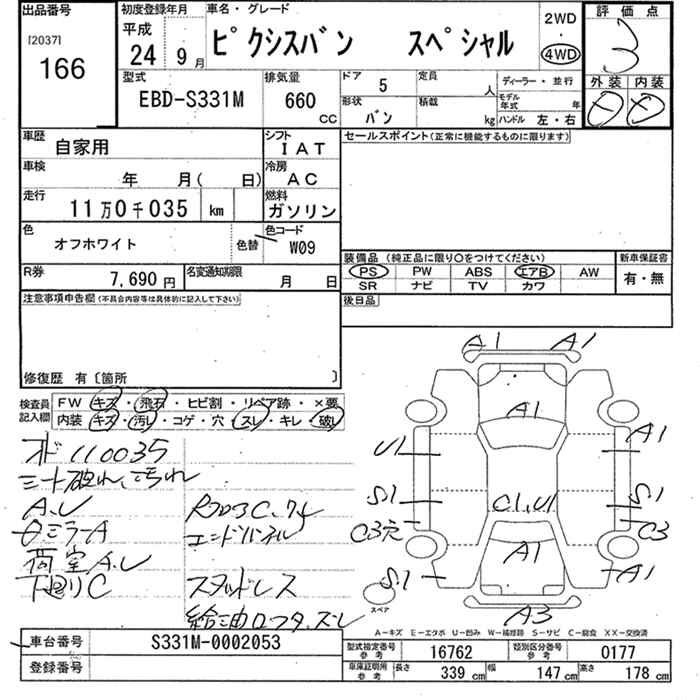 出品番号
[2037]
166
初度登録年月
平成
24 9月
車名・グレード
ピクシスバン スペシャル
2WD
・
4WD
評価点
3
外装 内装
型式
EBD-S331M
排気量
660
CC
ドア 5
形状 バン
定員 人
積載 kg
ディーラー・並行
モデル年式 年
ハンドル 左・右
車歴 自家用
シフト IAT
車検 年 月( 日)
冷房 AC
走行 11万0千035 km
燃料 ガソリン
色 オフホワイト
色替
色コード W09
R券 7,690円
名変通知期限 月 日
セールスポイント(正常に機能するものに限ります)
装備品(純正品に限り〇をつけてください)
新車保証書
PS PW ABS エアB AW
SR ナビ TV カワ
有・無
後日品
注意事項申告欄(不具合内容等は具体的に記入して下さい)
修復歴 有〔箇所 〕
検査員記入欄
FW キズ・飛石・ヒビ割・リペア跡・×要
内装 キズ・汚レ・コゲ・穴・スレ・キレ・破レ
オド110035
シート破れ、汚れ
A.U
ミラーA
荷室A.U
下廻りC
エンドパネル
スタッドレス
A1 A1
A1
U1
A1
S1
C1,U1
S1
C3穴
C3
A1
S1
A1
A3
スペア
A-キズ E-エクボ U-凹み W-補修跡 S-サビ C-腐食 XX-交換済
車台番号 S331M-0002053
登録番号
型式指定番号参考 16762
類別区分番号参考 0177
車庫証明用参考 長さ 339cm 幅 147cm 高さ 178cm